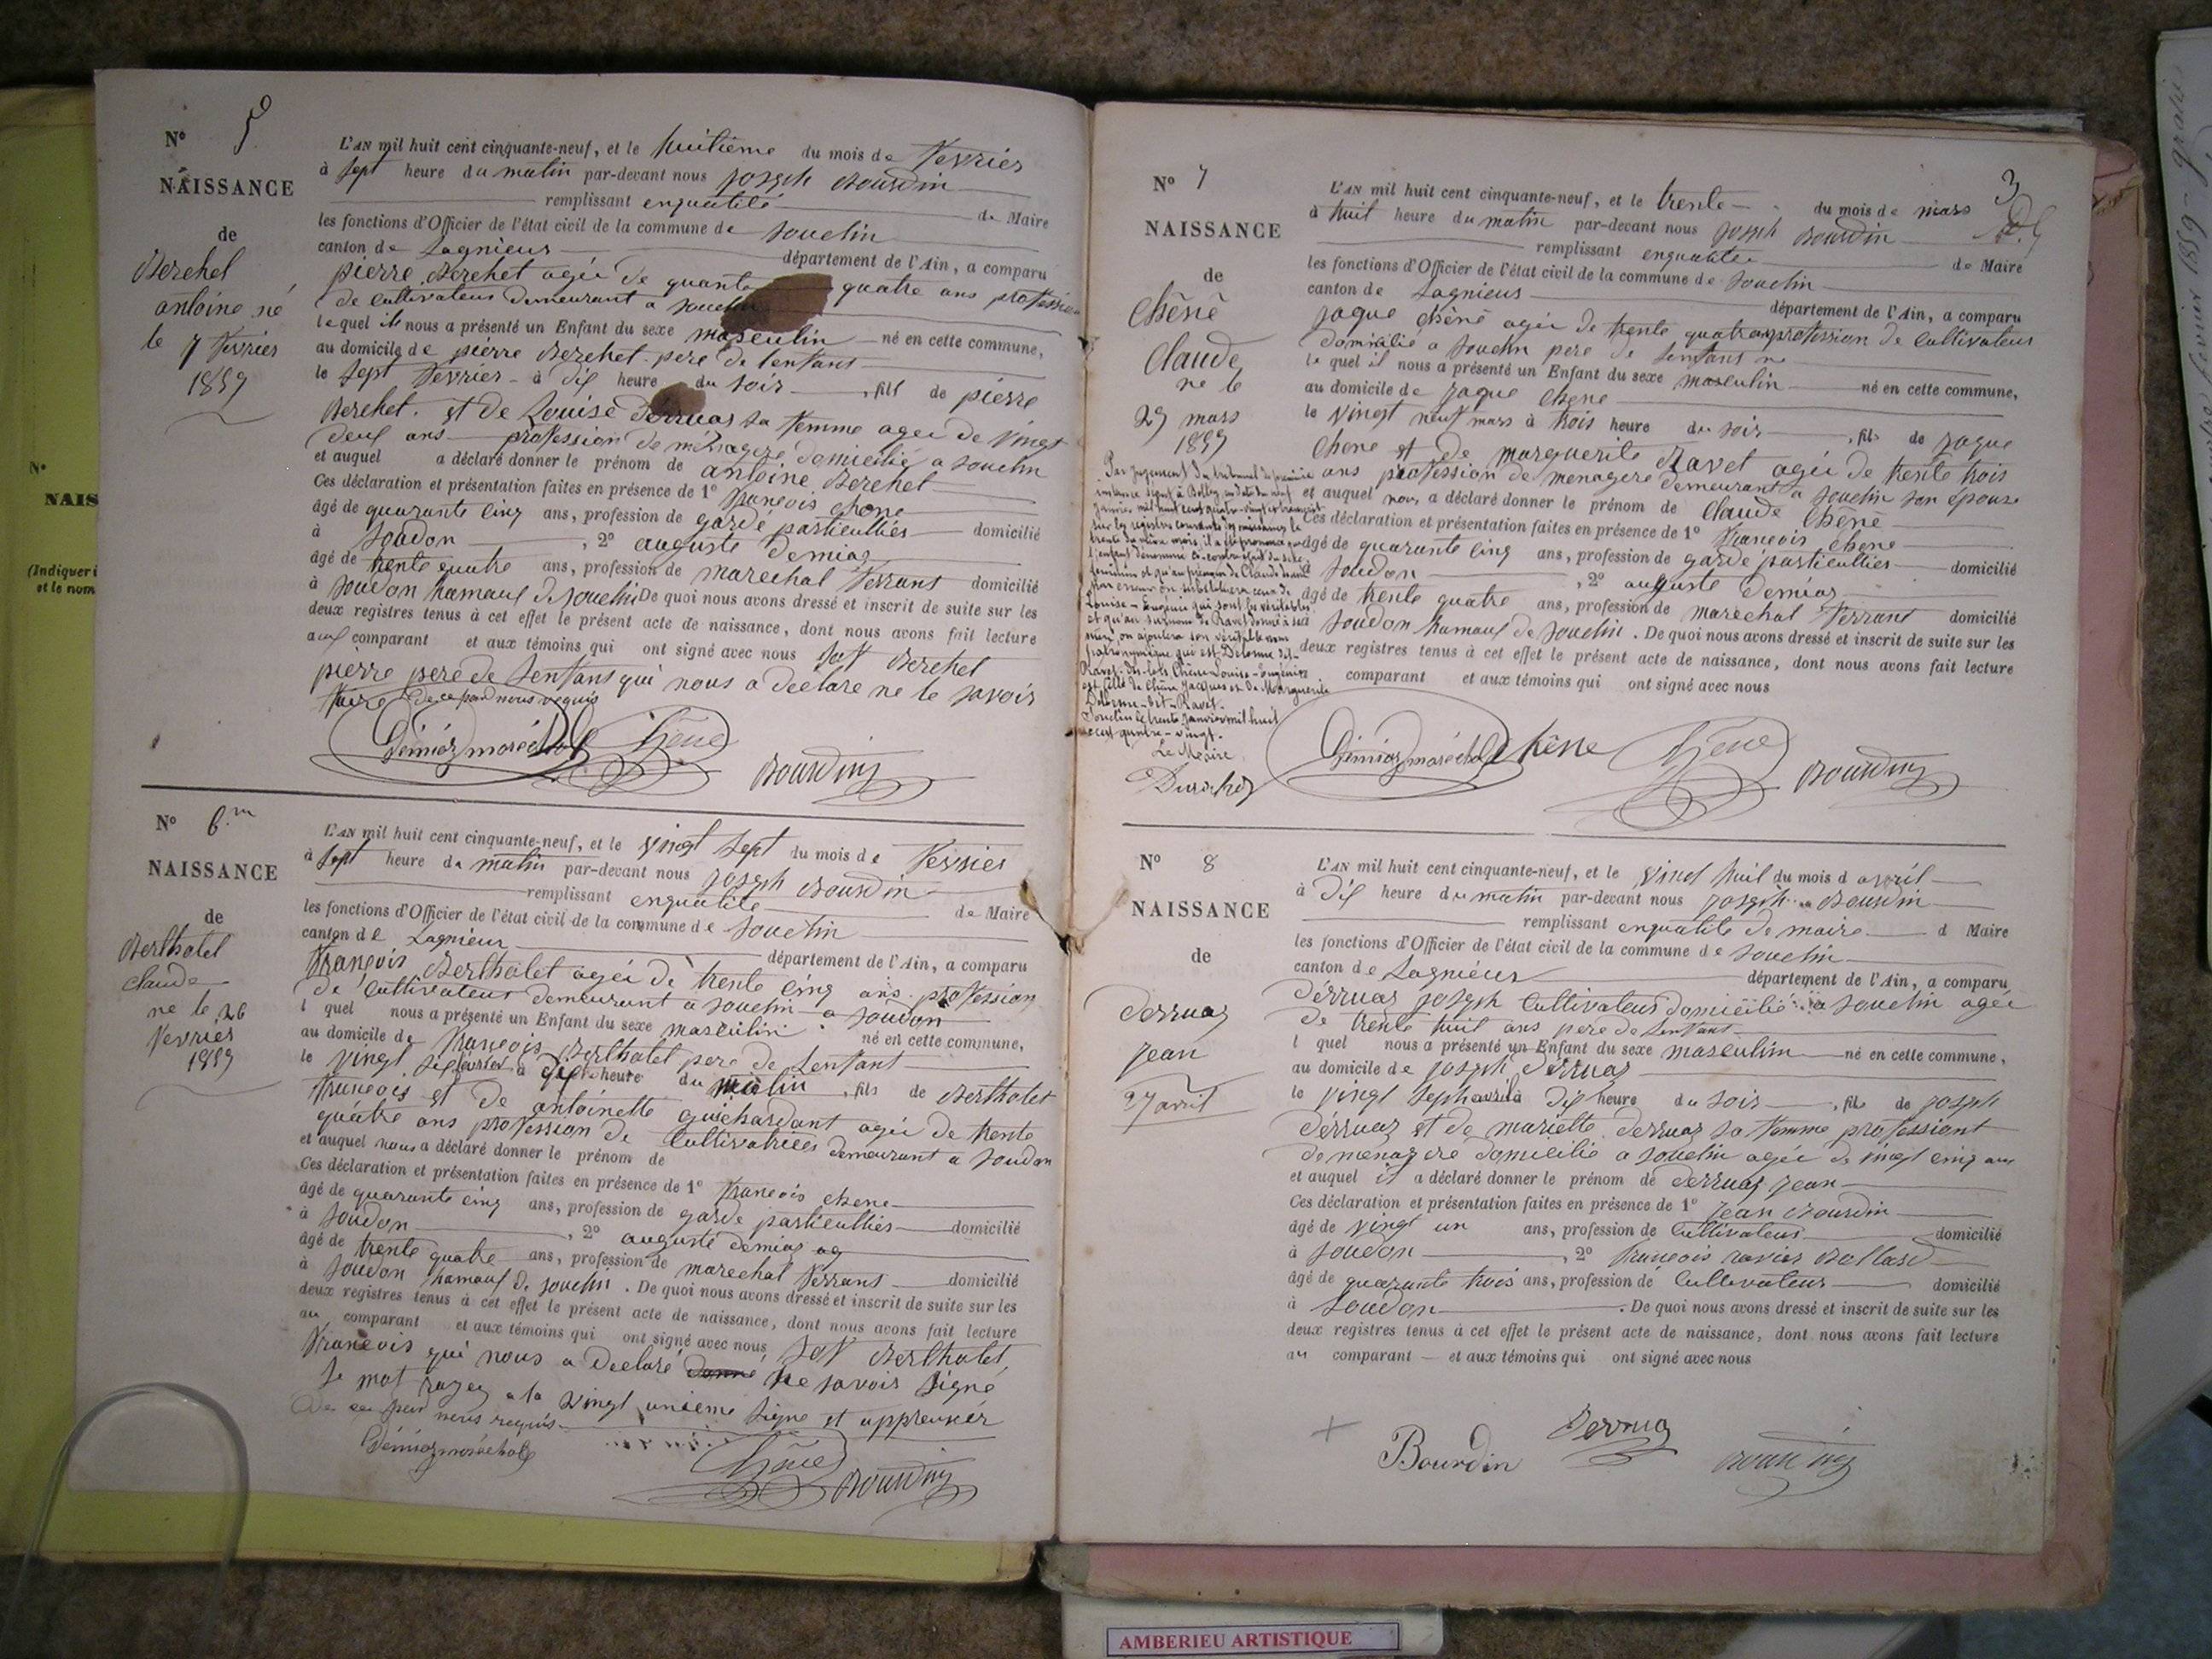 N° 5
NAISSANCE
de
Berchet
antoine né
le 7 fevrier
1859
L'AN mil huit cent cinquante-neuf, et le huitième du mois de fevrier
à sept heure du matin par-devant nous joseph Bourdin
remplissant enqualité de Maire
les fonctions d'Officier de l'état civil de la commune de souclin
canton de Lagnieus département de l'Ain, a comparu
pierre Berchet agée de quarante quatre ans profession
de cultivateur demeurant a souclin
lequel il nous a présenté un Enfant du sexe masculin né en cette commune,
au domicile de pierre Berchet pere de lenfant
le sept fevrier à dix heure du soir, fils de pierre
Berchet. et de Louise Derruaz sa femme agée de vingt
deux ans profession de ménagere domicilié a souclin
et auquel a déclaré donner le prénom de antoine Berchet
Ces déclaration et présentation faites en présence de 1° françois chene
âgé de quarante cinq ans, profession de garde particulliés domicilié
à soudon, 2° auguste Demiaz
âgé de trente quatre ans, profession de marechal ferrans domicilié
à soudon hamaux de souclin De quoi nous avons dressé et inscrit de suite sur les
deux registres tenus à cet effet le présent acte de naissance, dont nous avons fait lecture
aux comparant et aux témoins qui ont signé avec nous sof Berchet
pierre pere de lenfans qui nous a declare ne le savoir
faire de ce pard nous requis
Démiaz maréchal Chêne Bourdin
N° 6.m
NAISSANCE
de
Bertholet
claude
ne le 26
fevrier
1859
L'AN mil huit cent cinquante-neuf, et le vingt sept du mois de fevrier
à sept heure du matin par-devant nous joseph Bourdin
remplissant enqualité de Maire
les fonctions d'Officier de l'état civil de la commune de souclin
canton de Lagnieur département de l'Ain, a comparu
françois Berthalet agée de trente cinq ans profession
de cultivateur demeurant a souclin a soudon
l quel nous a présenté un Enfant du sexe masculin né en cette commune,
au domicile de françois Berthalet pere de lenfant
le vingt six fevrier à dix heure du matin, fils de Berthalet
françois et de antoinette guichardant agée de trente
quatre ans profession de cultivatrices demeurant a soudon
et auquel nous a déclaré donner le prénom de
Ces déclaration et présentation faites en présence de 1° françois chene
âgé de quarante cinq ans, profession de garde particulliés domicilié
à soudon, 2° auguste demiaz ag
âgé de trente quatre ans, profession de marechal ferrans domicilié
à soudon hamaux de souclin. De quoi nous avons dressé et inscrit de suite sur les
deux registres tenus à cet effet le présent acte de naissance, dont nous avons fait lecture
au comparant et aux témoins qui ont signé avec nous sof Berthalet
françois qui nous a declaré donné ne savoir signé
le mot rayez a la vingt unieme ligne et approuvér
De ce pard nous requis
Démiaz maréchal Chêne Bourdin
3
N° 7
NAISSANCE
de
Chêne
Claude
ne le
29 mars
1859
Par jugement du tribunal de première
instance séant à Belley, en date du neuf
janvier mil huit cent quatre-vingt et transcrit
sur les registres courants des naissances le
trente du même mois, il a été prononcé que
l'enfant dénommé ci-contre était du sexe
féminin et qu'au prénom de Claude donné
par erreur on substituera ceux de
Louise-Eugénie qui sont les véritables
et qu'au surnom de Ravet donné à sa
mère on ajoutera son véritable nom
patronymique qui est Delorme dit-
Ravet, dès-lors Chêne Louise-Eugénie
est fille de Chêne Jacques et de Marguerite
Delorme-dit-Ravet.
Souclin le trente janvier mil huit
cent quatre-vingt.
Le Maire
L'AN mil huit cent cinquante-neuf, et le trente du mois de mars
à huit heure du matin par-devant nous joseph Bourdin
remplissant enqualitée de Maire
les fonctions d'Officier de l'état civil de la commune de souclin
canton de Lagnieus département de l'Ain, a comparu
jaque chêne agée de trente quatre ans profession de cultivateur
domicilié a souclin pere de lenfans ne
le quel il nous a présenté un Enfant du sexe masculin né en cette commune,
au domicile de jaque chene
le vingt neuf mars à trois heure du soir, fils de jaque
chene et de marguerite Ravet agée de trente trois
ans profession de menagere demeurant a souclin son épouse
et auquel nous a déclaré donner le prénom de Claude Chêne
Ces déclaration et présentation faites en présence de 1° françois chene
âgé de quarante cinq ans, profession de garde particulliés domicilié
à soudon, 2° auguste Demiaz
âgé de trente quatre ans, profession de maréchal ferrans domicilié
à soudon hamaux de souclin. De quoi nous avons dressé et inscrit de suite sur les
deux registres tenus à cet effet le présent acte de naissance, dont nous avons fait lecture
comparant et aux témoins qui ont signé avec nous
Démiaz maréchal Chêne Chêne Bourdin
N° 8
NAISSANCE
de
Derruaz
jean
27 avril
L'AN mil huit cent cinquante-neuf, et le vingt huit du mois d avril
à dix heure du matin par-devant nous joseph Bourdin
remplissant enqualite de maire d Maire
les fonctions d'Officier de l'état civil de la commune de souclin
canton de Lagnieus département de l'Ain, a comparu
dérruaz joseph cultivateur domicilié a souclin agée
de trente huit ans pere de lenfans
l quel nous a présenté un Enfant du sexe masculin né en cette commune,
au domicile de joseph Derruaz
le vingt sept avril à dix heure du soir, fils de joseph
dérruaz et de mariette derruaz sa femme professiont
de menagere domicilié a souclin agée de vingt cinq ans
et auquel il a déclaré donner le prénom de derruaz jean
Ces déclaration et présentation faites en présence de 1° jean Bourdin
âgé de vingt un ans, profession de cultivateur domicilié
à soudon, 2° françois ravier Ballard
âgé de quarante trois ans, profession de cultivateur domicilié
à soudon. De quoi nous avons dressé et inscrit de suite sur les
deux registres tenus à cet effet le présent acte de naissance, dont nous avons fait lecture
au comparant et aux témoins qui ont signé avec nous
Bourdin Derruaz Bourdin
N°
NAIS
(Indiquer i
et le nom
AMBERIEU ARTISTIQUE